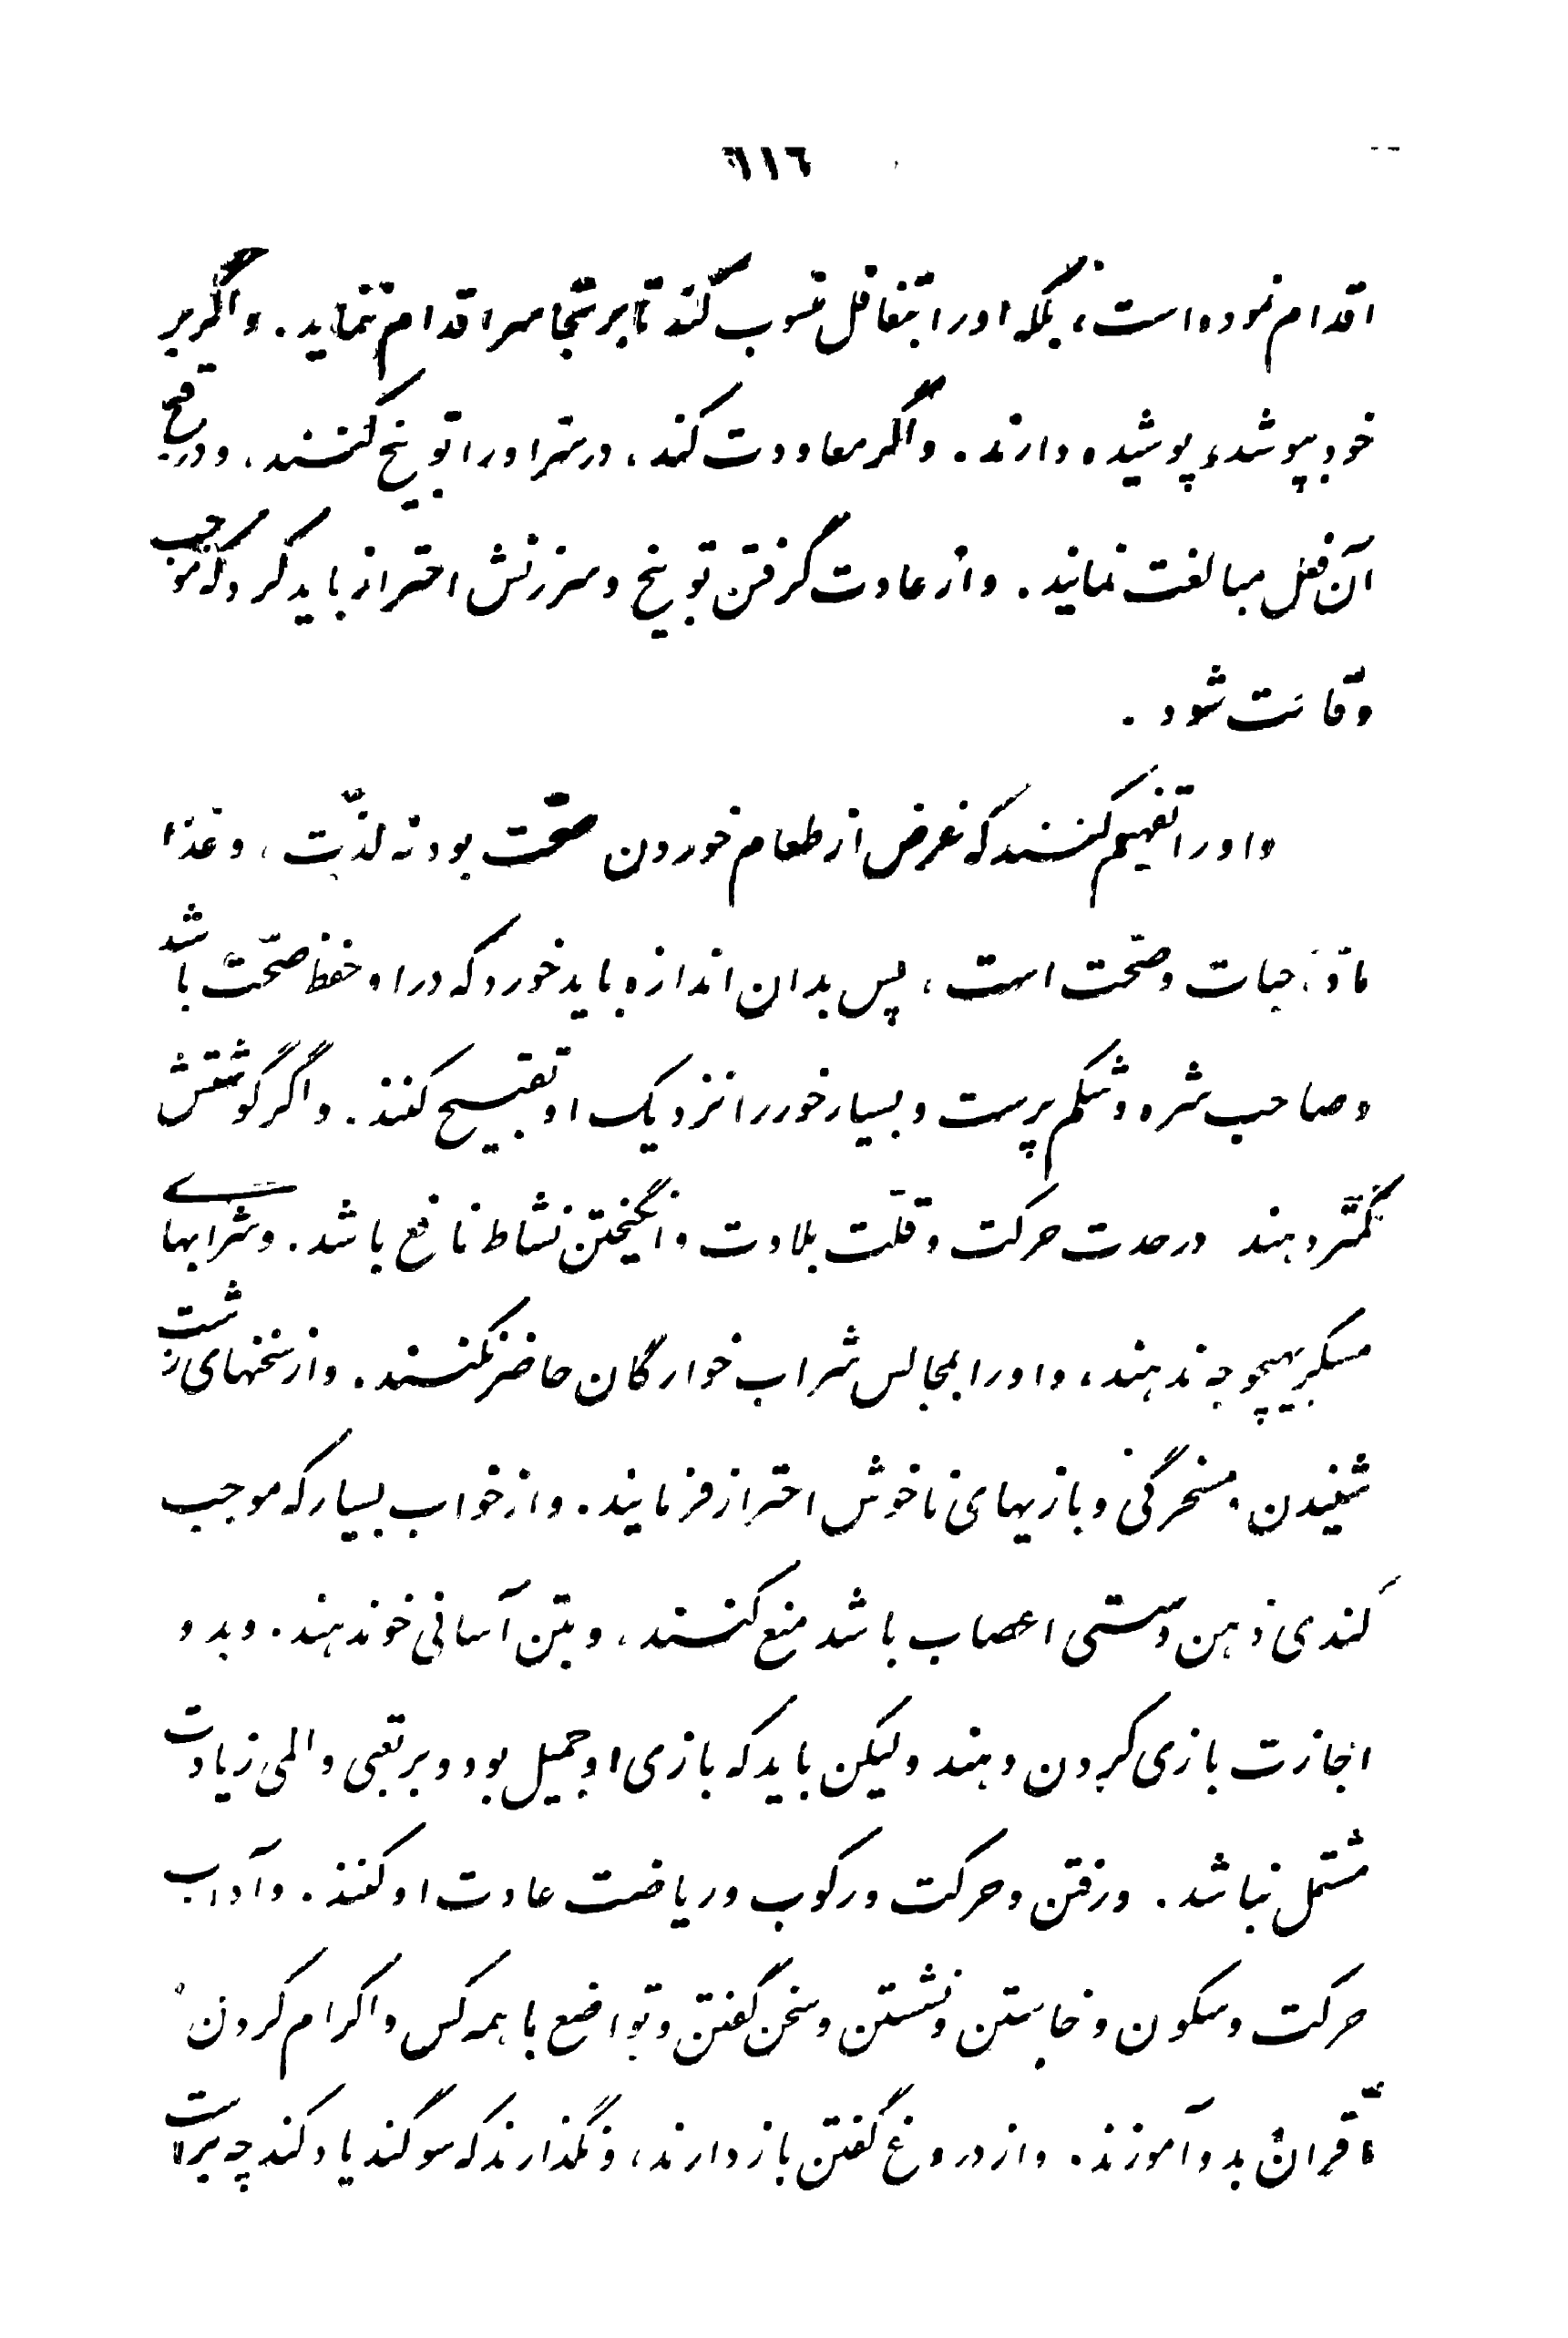 ٦١٦
اقدام نموده است، بلکه او را بتغافل منسوب کند تا بر تجاسر اقدام ننماید. واگر بر
خود بپوشد، پوشیده دارند. واگر معاودت کند، در سر او را توبیخ کنند، ودر قبح
آن فعل مبالغت نمایند. واز عادت گرفتن توبیخ وسرزنش احتراز باید کرد که موجب
وقاحت شود.
واو را تفهیم کنند که غرض از طعام خوردن صحّت بود نه لذّت، وغذا
مادّهٔ حیات وصحّت است، پس بدان اندازه باید خورد که در او حفظ صحّت باشد
وصاحب شره وشکم پرست وبسیار خور را نزدیک او تقبیح کنند. واگر گوشتش
کمتر دهند در حدت حرکت وقلّت بلادت وانگیختن نشاط نافع باشد. وشرابهای
مسکر بهیچوجه ندهند، واو را بمجالس شراب خوارگان حاضر نکنند. واز سخنهای زشت
شنیدن ومسخرگی وبازیهای ناخوش احتراز فرمایند. واز خواب بسیار که موجب
کندی ذهن وسستی اعصاب باشد منع کنند، وبتن آسانی خو ندهند. وبدو
اجازت بازی کردن دهند ولیکن باید که بازی او جمیل بود وبر تعبی والمی زیادت
مشتمل نباشد. ورفتن وحرکت ورکوب وریاضت عادت او کنند. وآداب
حرکت وسکون وخاستن ونشستن وسخن گفتن وتواضع با همه کس واکرام کردن
اقران بدو آموزند. واز دروغ گفتن باز دارند، ونگذارند که سوگند یاد کند چه براست